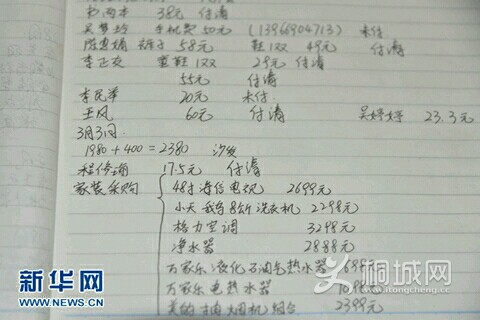 书两本 38元 付清
吴梦玲 手机架 50元 (13966904713) 未付
裤子 58元 鞋1双 49元 付清
李正文 童鞋1双 29元 付清
55元 付清
李民革 20元 未付
王凤 60元 付清 吴婷婷 23.3元
3月3日
1980+400=2380 沙发
程修瑜 17.5元 付清
家装采购
48寸海信电视 2699元
小天鹅8公斤洗衣机 2298元
格力空调 3298元
净水器 2888元
万家乐液化石油气热水器 1698元
万家乐电热水器 1098元
美的抽烟机组合 2399元
新华网
WWW.NEWS.CN
桐城网
itongcheng.cc